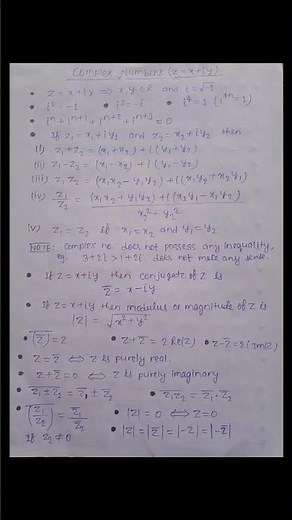 Complex Numbers (z = x+iy)
• z = x+iy ⟹ x,y∈R and i=√-1
• i² = -1 • i³ = -i • i⁴ = 1 (i⁴ⁿ=1)
• iⁿ + iⁿ⁺¹ + iⁿ⁺² + iⁿ⁺³ = 0
• If z₁ = x₁+iy₁ and z₂ = x₂+iy₂ then
(i) z₁+z₂ = (x₁+x₂) + i(y₁+y₂)
(ii) z₁-z₂ = (x₁-x₂) + i(y₁-y₂)
(iii) z₁z₂ = (x₁x₂-y₁y₂) + i(x₁y₂+x₂y₁)
(iv) z₁/z₂ = (x₁x₂+y₁y₂) + i(x₂y₁-x₁y₂) / x₂²+y₂²
(v) z₁ = z₂ if x₁=x₂ and y₁=y₂
NOTE: Complex no. does not possess any inequality,
eg. 3+2i > 1+2i does not make any sense.
• If z=x+iy then conjugate of z is
z̅ = x-iy
• If z=x+iy then modulus or magnitude of z is
|z| = √x²+y²
• (z̅)̅ = z • z+z̅ = 2 Re(z) • z-z̅ = 2i Im(z)
• z=z̅ ⟺ z is purely real.
• z+z̅=0 ⟺ z is purely imaginary
• z₁±z₂ ̅ = z̅₁ ± z̅₂ • z₁z₂ ̅ = z̅₁·z̅₂
• (z₁/z₂)̅ = z̅₁/z̅₂ • |z| = 0 ⟺ z=0
If z₂≠0 • |z| = |z̅| = |-z| = |-z̅|